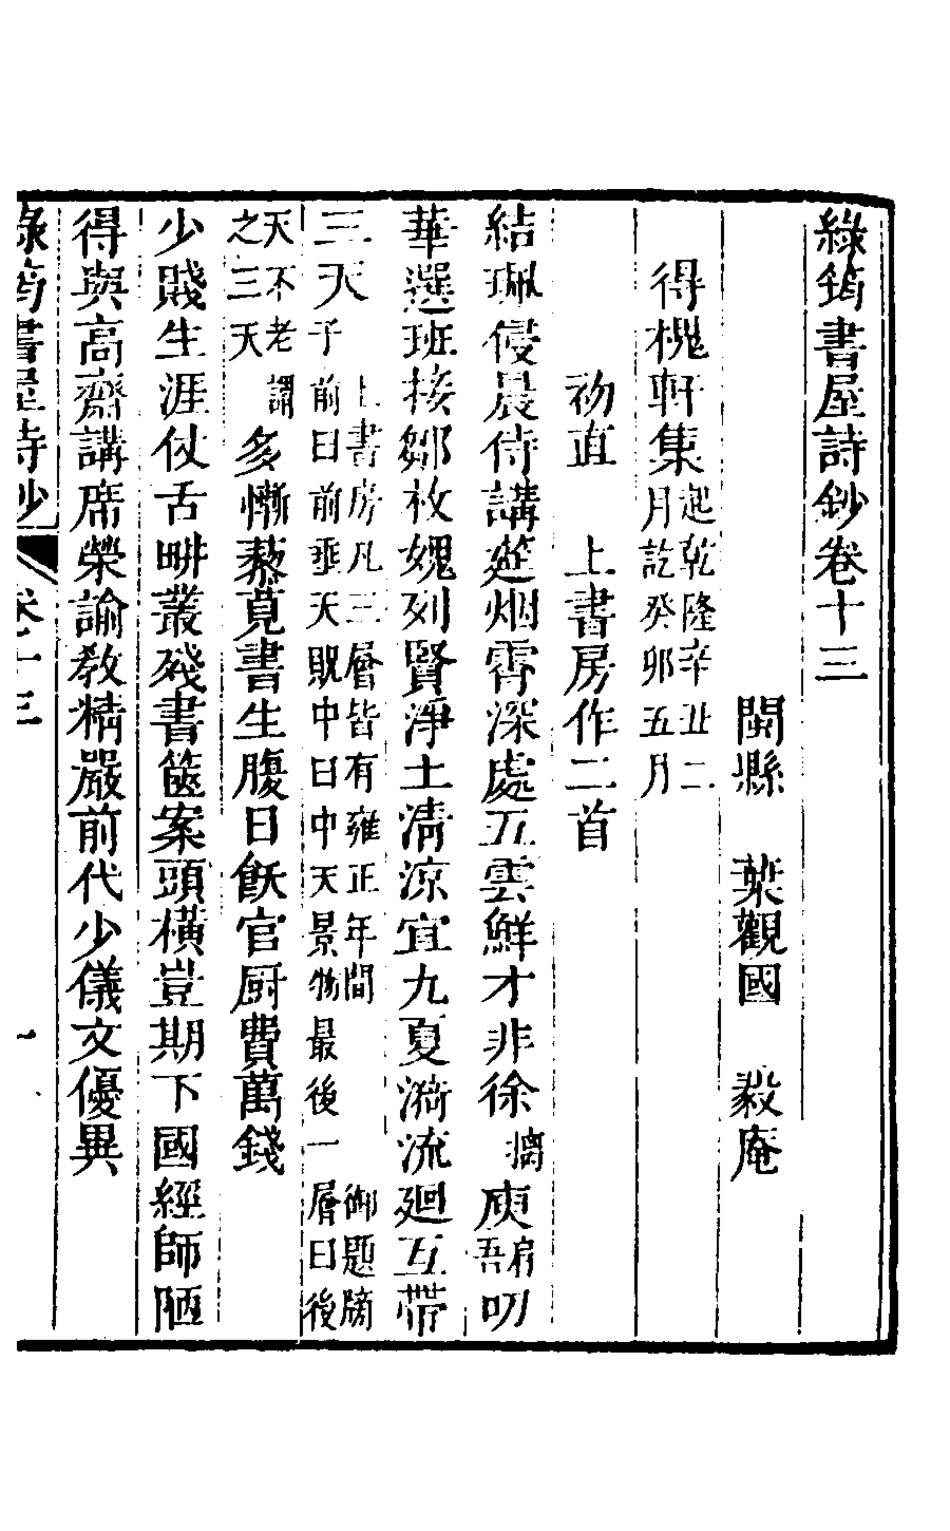 綠筠書屋詩鈔卷十三
閩縣　葉觀國　毅庵
得槐軒集起乾隆辛丑二月訖癸卯五月
初直　上書房作二首
結珮侵晨侍講筵烟霄深處五雲鮮才非徐摛庾肩吾叨
華選班接鄒枚媿列賢淨土清涼宜九夏漪流廻互帶
三天上書房凡三層皆有雍正年間御題牓子前曰前垂天貺中曰中天景物最後一層曰後
天不老謂之三天多慚藜莧書生腹日飫官厨費萬錢
少賤生涯仗舌畊叢殘書篋案頭橫豈期下國經師陋
得與高齋講席榮諭教精嚴前代少儀文優異
綠筠書屋詩鈔　卷十三　一